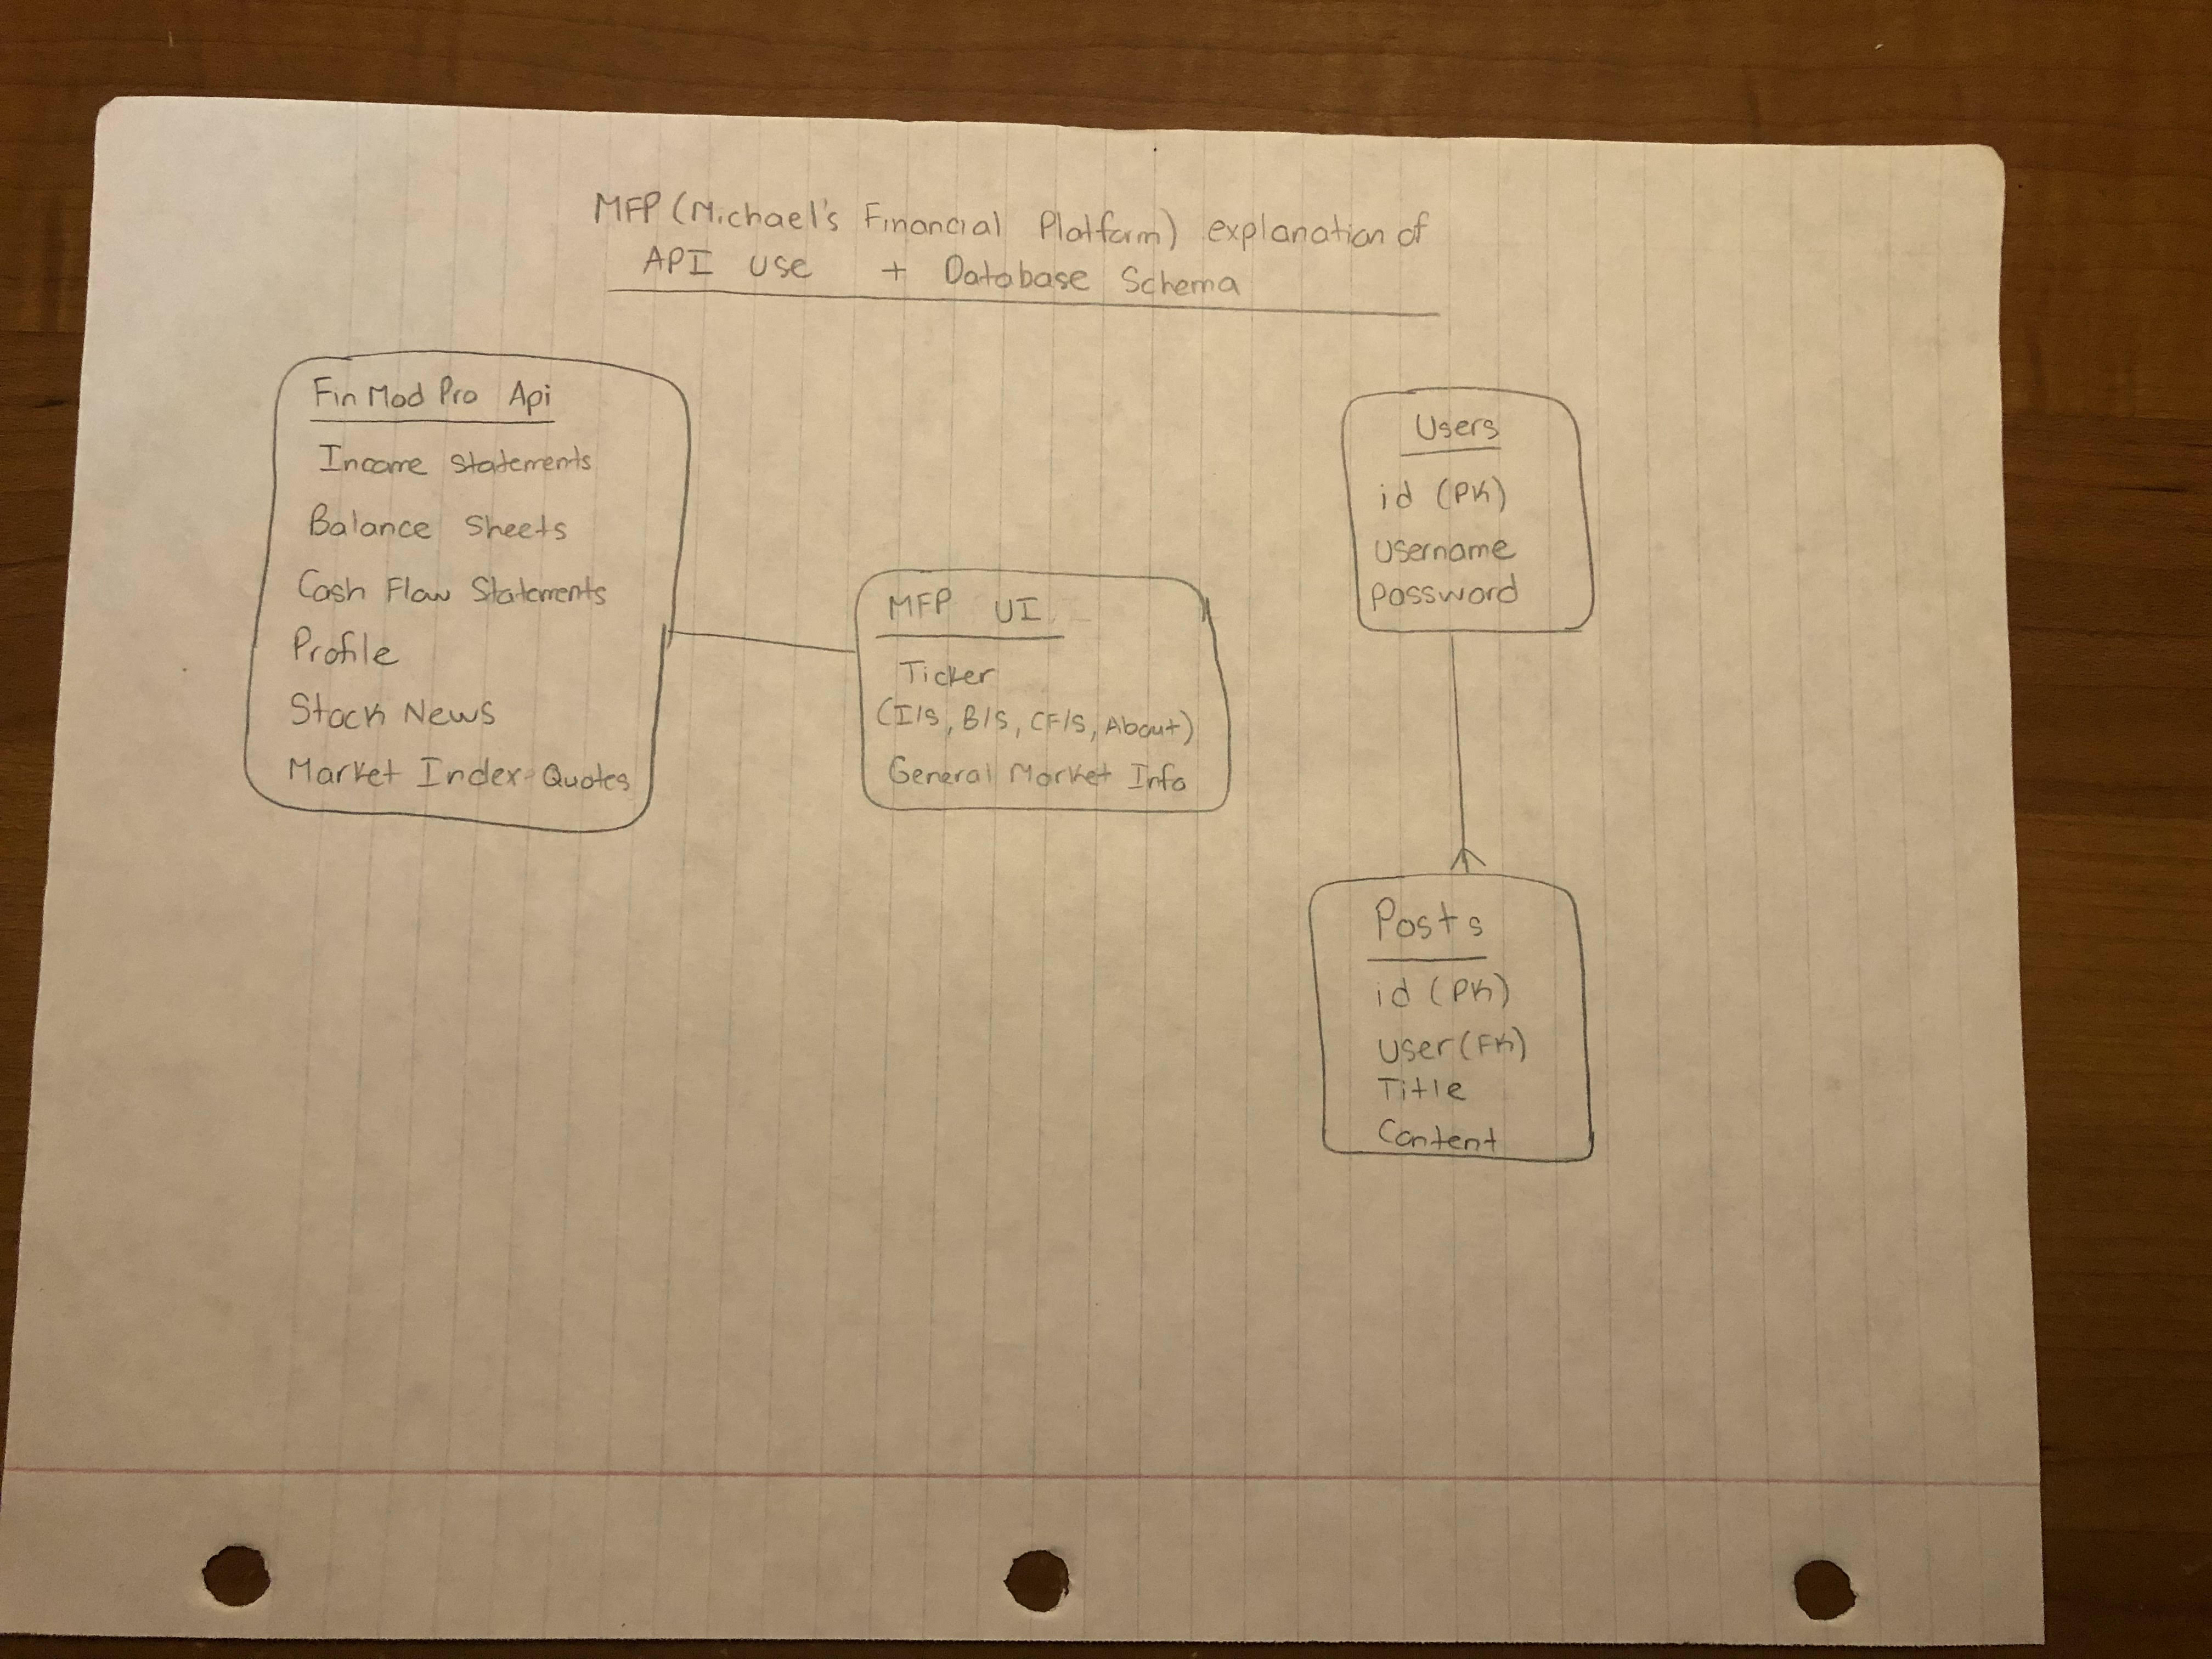 MFP (Michael's Financial Platform) explanation of
API use + Database Schema
Fin Mod Pro Api
Income Statements
Balance Sheets
Cash Flow Statements
Profile
Stock News
Market Index Quotes
MFP UI
Ticker
(I/S, B/S, CF/S, About)
General Market Info
Users
id (PK)
username
password
Posts
id (PK)
user (FK)
Title
Content